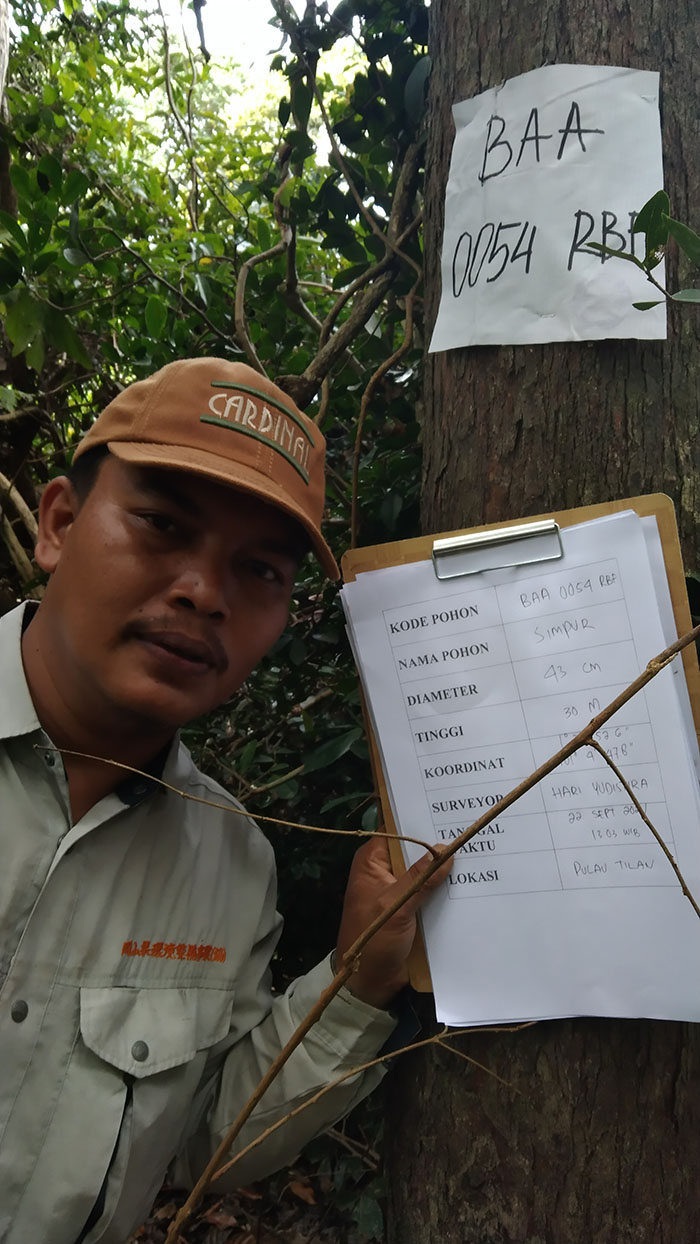 BAA
0054 RBF
CARDINAL
KODE POHON BAA 0054 RBF
NAMA POHON SIMPUR
DIAMETER 43 CM
TINGGI 30 M
KOORDINAT
SURVEYOR HARI YUDISTIRA
TANGGAL 22 SEPT
WAKTU 12 03 WIB
LOKASI PULAU TILAN